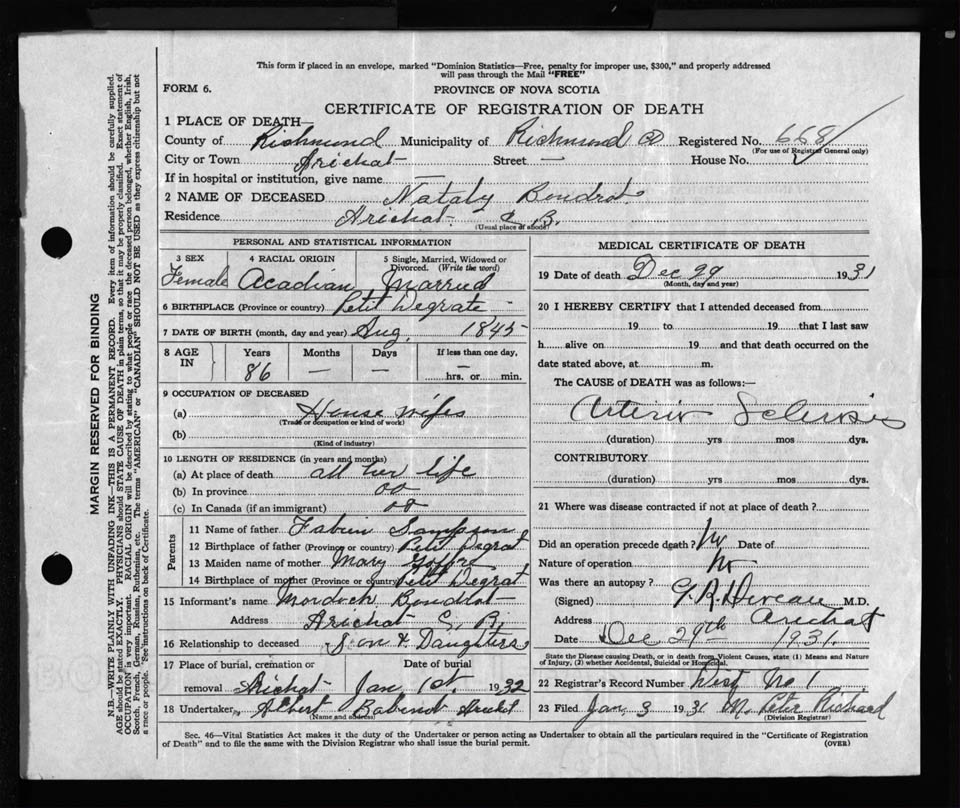 This form if placed in an envelope, marked "Dominion Statistics—Free, penalty for improper use, $300," and properly addressed
will pass through the Mail "FREE"
FORM 6.
PROVINCE OF NOVA SCOTIA
CERTIFICATE OF REGISTRATION OF DEATH
1 PLACE OF DEATH—
County of Richmond Municipality of Richmond Co Registered No. 668
(For use of Registrar General only)
City or Town Arichat Street — House No.
If in hospital or institution, give name —
2 NAME OF DECEASED Nataly Boudrot
Residence Arichat C.B.
(Usual place of abode)
PERSONAL AND STATISTICAL INFORMATION
3 SEX 4 RACIAL ORIGIN 5 Single, Married, Widowed or
Divorced. (Write the word)
Female Acadian Married
6 BIRTHPLACE (Province or country) Petit Degrate
7 DATE OF BIRTH (month, day and year) Aug. 1845
8 AGE IN Years Months Days If less than one day,
86 — — — hrs. or min.
9 OCCUPATION OF DECEASED
(a) House wifes
(Trade or occupation or kind of work)
(b)
(Kind of industry)
10 LENGTH OF RESIDENCE (in years and months)
(a) At place of death all her life
(b) In province
(c) In Canada (if an immigrant)
Parents
11 Name of father Sampson
12 Birthplace of father (Province or country) Petit Degrat
13 Maiden name of mother Mary
14 Birthplace of mother (Province or country) Petit Degrat
15 Informant's name Mordoch Boudrot
Address Arichat C. B.
16 Relationship to deceased Son & Daughters
17 Place of burial, cremation or Date of burial
removal Arichat Jan 1st. 1932
18 Undertaker Albert Arichat
(Name and address)
MEDICAL CERTIFICATE OF DEATH
19 Date of death Dec 29 1931
(Month, day and year)
20 I HEREBY CERTIFY that I attended deceased from
19 to 19 that I last saw
h alive on 19 and that death occurred on the
date stated above, at m.
The CAUSE of DEATH was as follows:—
Arterio Sclerosis
(duration) yrs mos dys.
CONTRIBUTORY
(duration) yrs mos dys.
21 Where was disease contracted if not at place of death?
Did an operation precede death? No Date of
Nature of operation
Was there an autopsy? No
(Signed) M.D.
Address Arichat
Date Dec 29th 1931.
State the Disease causing Death, or in death from Violent Causes, state (1) Means and Nature
of Injury, (2) whether Accidental, Suicidal or Homicidal.
22 Registrar's Record Number Dist No 1
23 Filed Jan. 3 1931 M. Peter Richard
(Division Registrar)
Sec. 46—Vital Statistics Act makes it the duty of the Undertaker or person acting as Undertaker to obtain all the particulars required in the "Certificate of Registration
of Death" and to file the same with the Division Registrar who shall issue the burial permit.
(OVER)
MARGIN RESERVED FOR BINDING
N.B.—WRITE PLAINLY WITH UNFADING INK—THIS IS A PERMANENT RECORD. Every item of information should be carefully supplied.
AGE should be stated EXACTLY. PHYSICIANS should STATE CAUSE OF DEATH in plain terms, so that it may be properly classified. Exact statement of
OCCUPATION is very important. RACIAL ORIGIN will be described by stating to what people or race the deceased person belonged, whether English, Irish,
Scotch, French, German, Russian, Ruthenian, etc. The terms "AMERICAN" or "CANADIAN" SHOULD NOT BE USED as they express citizenship but not
a race or people. See instructions on back of Certificate.